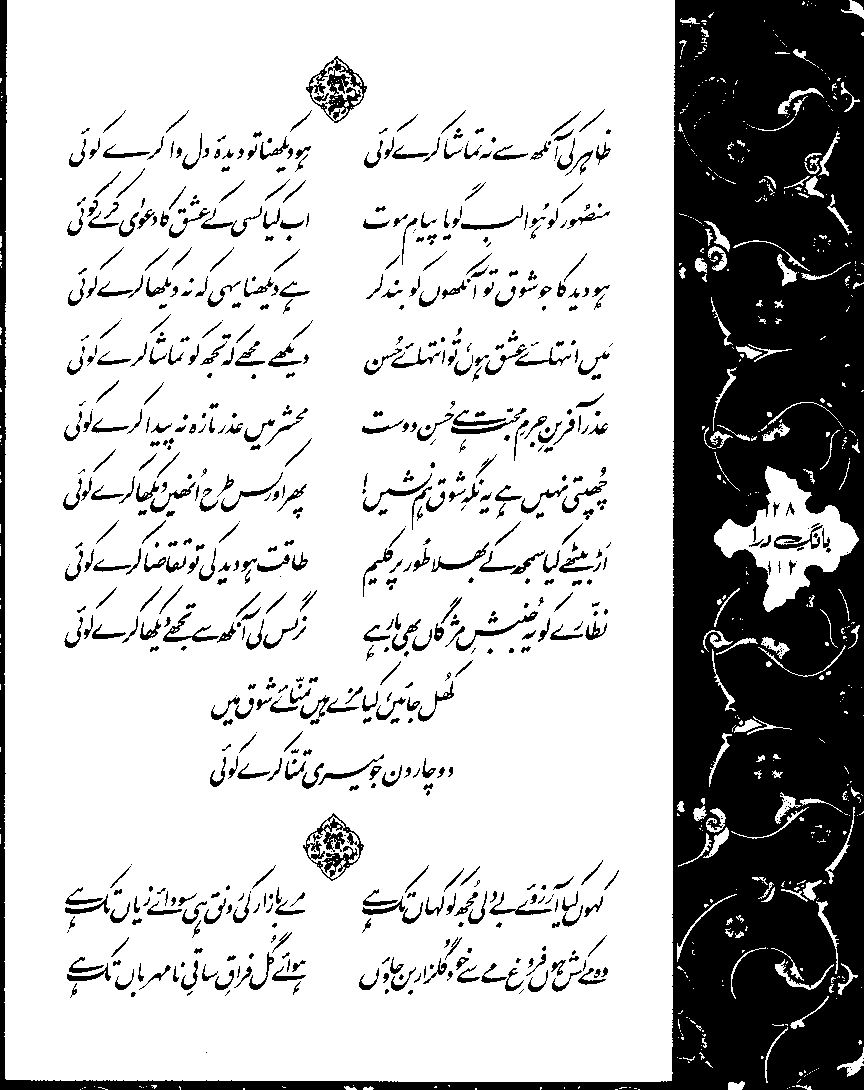 ظاہر کی آنکھ سے نہ تماشا کرے کوئی ہو دیکھنا تو دیدۂ دل وا کرے کوئی
منصُور کو ہُوا لبِ گویا پیامِ موت اب کیا کسی کے عشق کا دعویٰ کرے کوئی
ہو دید کا جو شوق تو آنکھوں کو بند کر ہے دیکھنا یہی کہ نہ دیکھا کرے کوئی
مَیں انتہائے عشق ہوں، تُو انتہائے حُسن دیکھے مجھے کہ تجھ کو تماشا کرے کوئی
عذر آفرینِ جرمِ محبّت ہے حُسنِ دوست محشر میں عذرِ تازہ نہ پیدا کرے کوئی
چھُپتی نہیں ہے یہ نگہِ شوق ہم نشیں! پھر اور کس طرح اُنھیں دیکھا کرے کوئی
اَڑ بیٹھے کیا سمجھ کے بھلا طُور پر کلیم طاقت ہو دید کی تو تقاضا کرے کوئی
نظّارے کو یہ جُنبشِ مژگاں بھی بار ہے نرگس کی آنکھ سے تجھے دیکھا کرے کوئی
کھُل جائیں، کیا مزے ہیں تمنّائے شوق میں
دو چار دن جو میری تمنّا کرے کوئی
کہوں کیا آرزوئے بے دلی مُجھ کو کہاں تک ہے مرے بازار کی رونق ہی سودائے زیاں تک ہے
وہ مے کش ہوں فروغِ مے سے خود گُلزار بن جاؤں ہوائے گُل فراقِ ساقیِ نامہرباں تک ہے
۱۲۸
بانگِ درا
۱۱۲